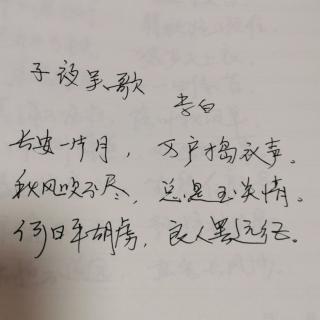 子夜吴歌
李白
长安一片月，万户捣衣声。
秋风吹不尽，总是玉关情。
何日平胡虏，良人罢远征。